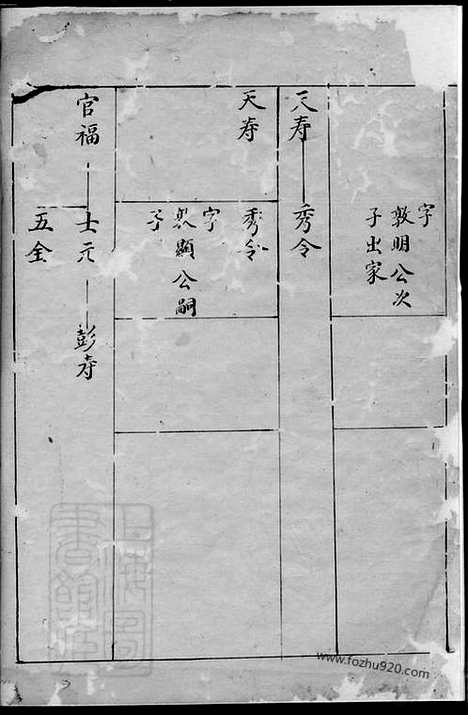 字
敦明公次
子出家
天寿 秀令
天寿
秀令
字
敦顯公嗣
子
官福 士元 彭寿
五全
www.fozhu920.com